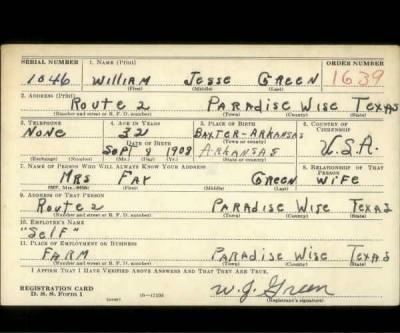 SERIAL NUMBER 1. NAME (Print) ORDER NUMBER
1046 William Jesse Green 1639
(First) (Middle) (Last)
2. ADDRESS (Print)
Route 2 Paradise Wise Texas
(Number and street or R. F. D. number) (Town) (County) (State)
3. TELEPHONE 4. AGE IN YEARS 5. PLACE OF BIRTH 6. COUNTRY OF CITIZENSHIP
None 32 Baxter-Arkansas
DATE OF BIRTH (Town or county)
Sept 9 1908 Arkansas U.S.A.
(Exchange) (Number) (Mo.) (Day) (Yr.) (State or country)
7. NAME OF PERSON WHO WILL ALWAYS KNOW YOUR ADDRESS 8. RELATIONSHIP OF THAT PERSON
Mrs Fay Green Wife
(Mr., Mrs., Miss) (First) (Middle) (Last)
9. ADDRESS OF THAT PERSON
Route 2 Paradise Wise Texas
(Number and street or R. F. D. number) (Town) (County) (State)
10. EMPLOYER'S NAME
"Self"
11. PLACE OF EMPLOYMENT OR BUSINESS
Farm Paradise Wise Texas
(Number and street or R. F. D. number) (Town) (County) (State)
I AFFIRM THAT I HAVE VERIFIED ABOVE ANSWERS AND THAT THEY ARE TRUE.
REGISTRATION CARD W. J. Green
D. S. S. Form 1 (Registrant's signature)